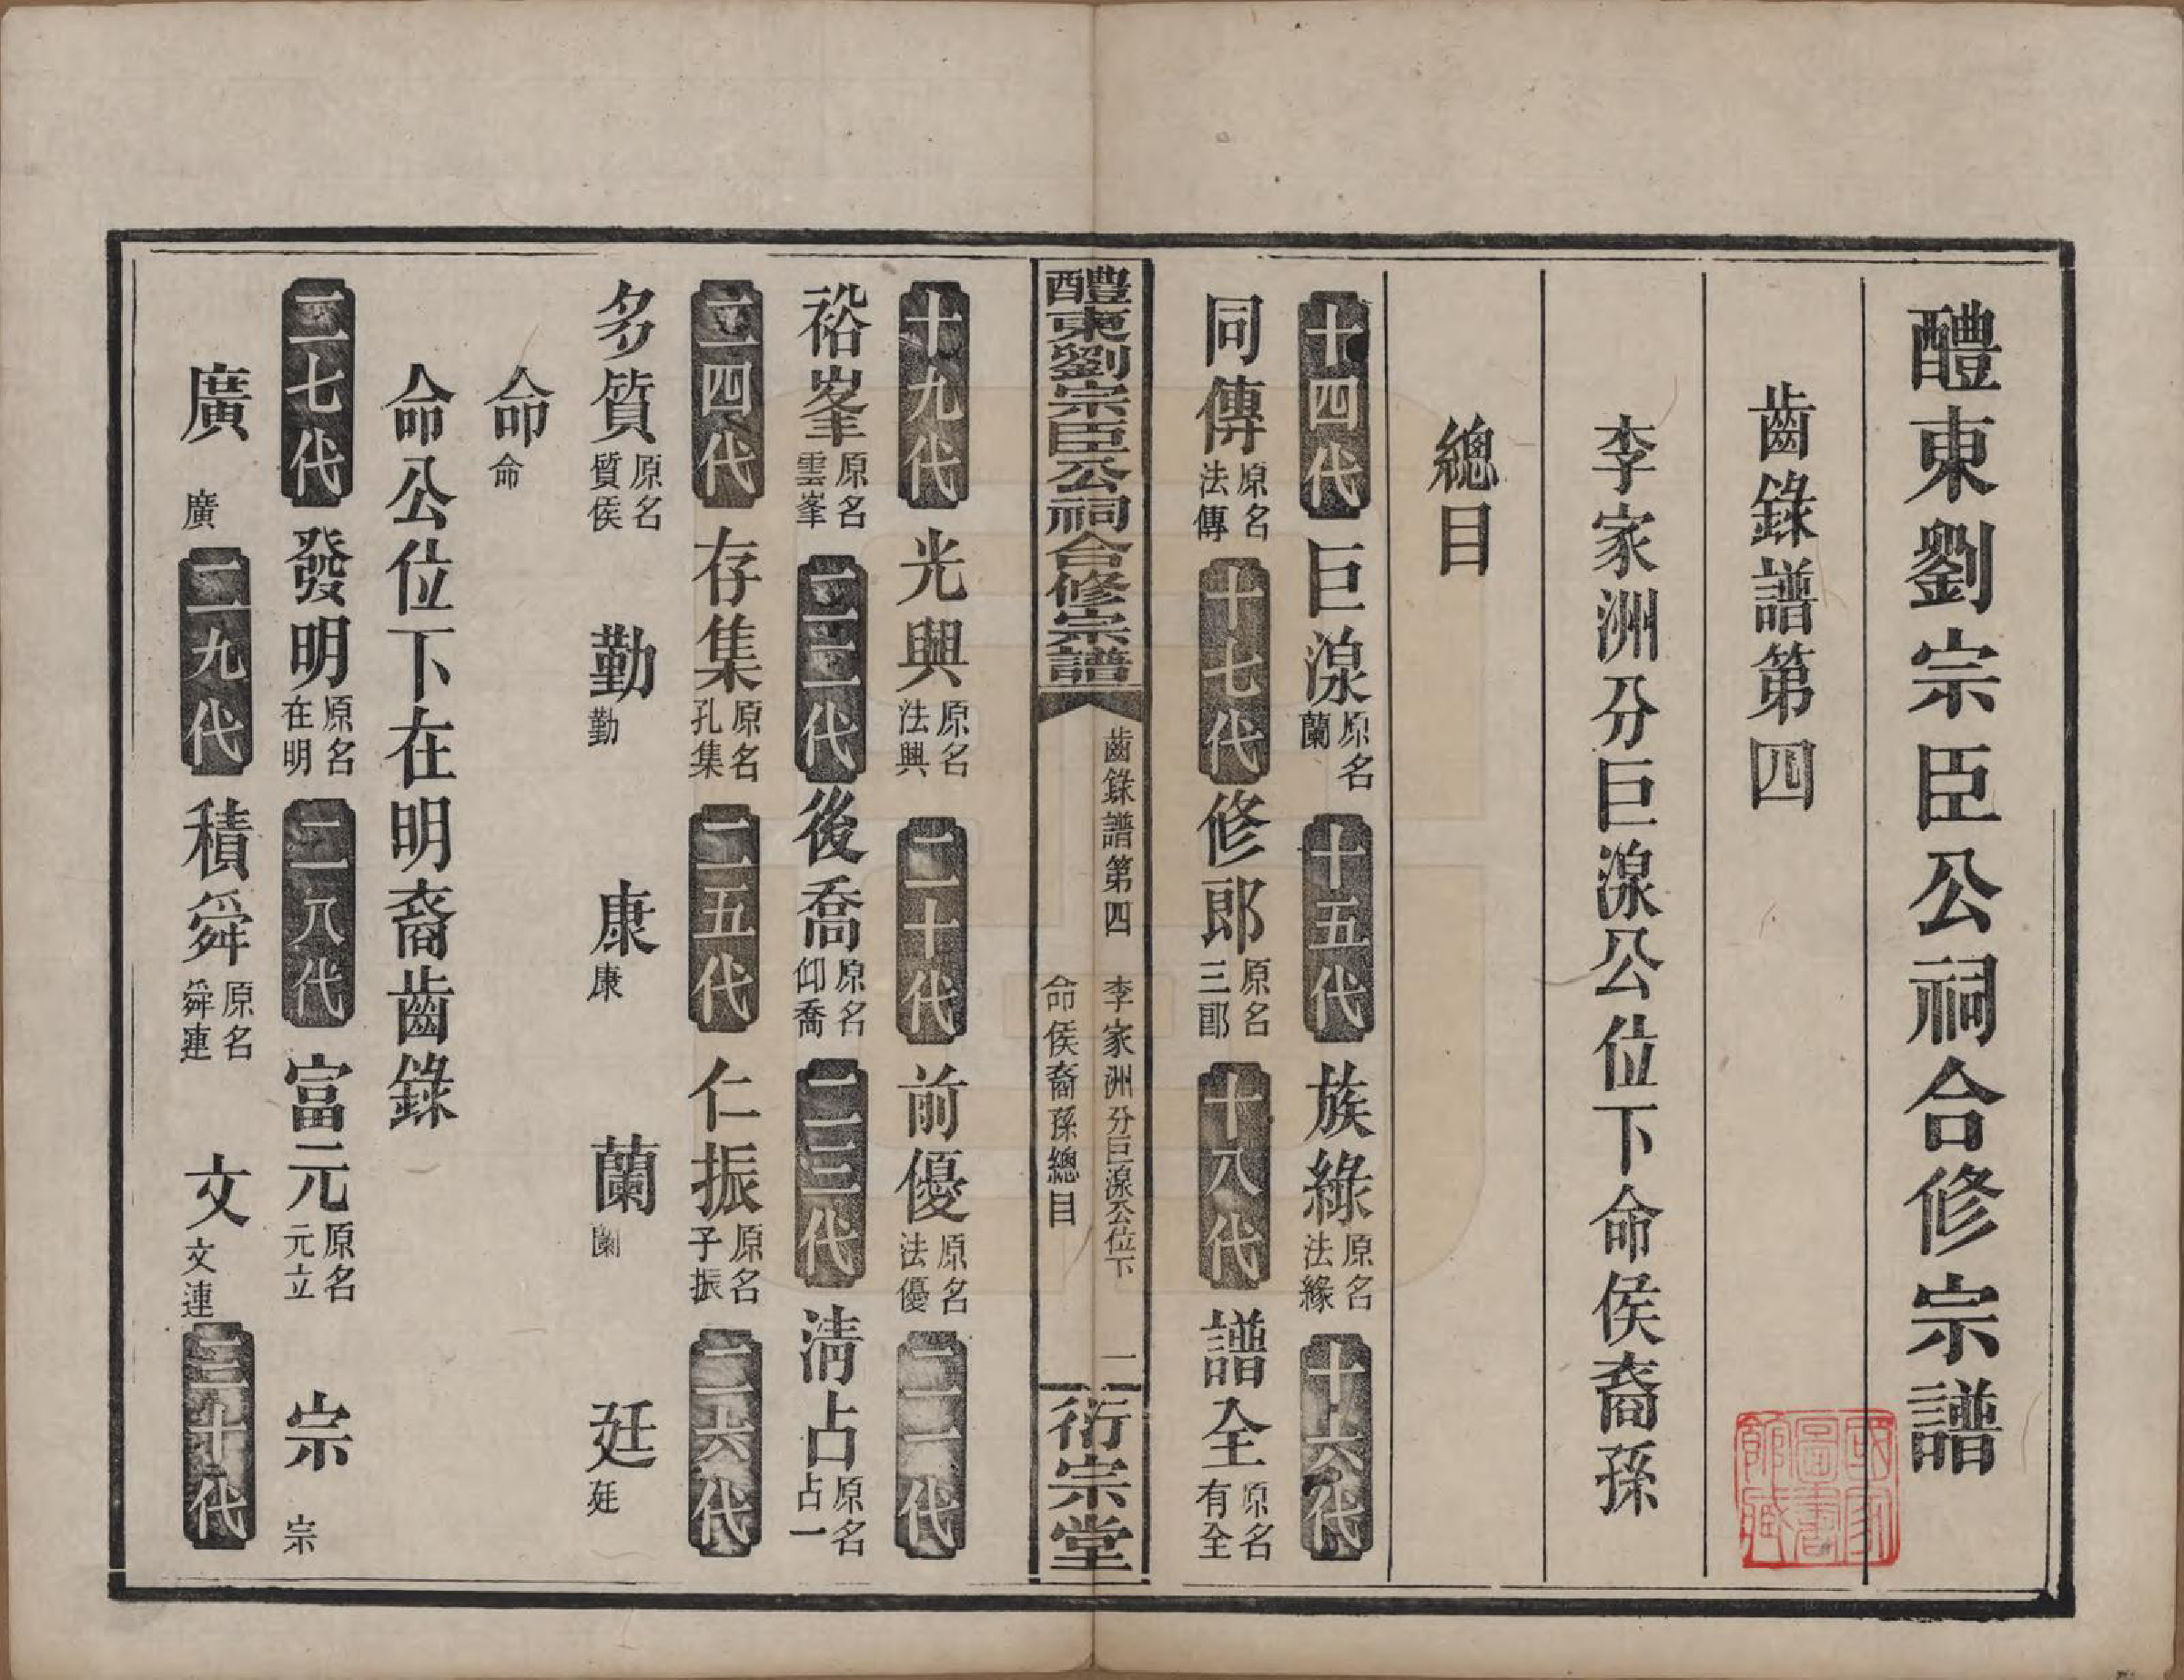 醴東劉宗臣公祠合修宗譜
齒錄譜第四
李家洲分巨湶公位下命侯裔孫
總目
十四代 巨湶 原名蘭 十五代 族綠 原名法緣 十六代
同傳 原名法傳 十七代 修郎 原名三郎 十八代 譜全 原名有全
醴東劉宗臣公祠合修宗譜 齒錄譜第四 李家洲分巨湶公位下命侯裔孫總目 二 衍宗堂
十九代 光興 原名法興 二十代 前優 原名法優 二一代
裕峯 原名雲峯 二二代 後喬 原名仰喬 二三代 清占 原名占一
二四代 存集 原名孔集 二五代 仁振 原名子振 二六代
多質 原名質侯 勤 勤 康 康 蘭 蘭 廷 廷
命 命
命公位下在明裔齒錄
二七代 發明 原名在明 二八代 富元 原名元立 宗 宗
廣 廣 二九代 積舜 原名舜連 文 文連 三十代
國家圖書館藏